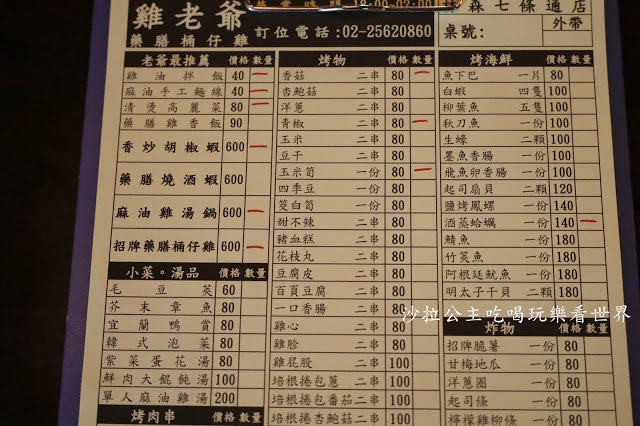 雞老爺
藥膳桶仔雞
營業時間 18:00-02:00
訂位電話:02-25620860
林森七條通店
桌號:
外帶
老爺最推薦 價格 數量
雞油拌飯 40 一
麻油手工麵線 40 一
清燙高麗菜 80 一
藥膳雞香飯 90
香炒胡椒蝦 600 一
藥膳燒酒蝦 600
麻油雞湯鍋 600 一
招牌藥膳桶仔雞 600 一
小菜。湯品 價格 數量
毛豆莢 60
芥末章魚 80
宜蘭鴨賞 80
韓式泡菜 80
紫菜蛋花湯 80
鮮肉大餛飩湯 100
單人麻油雞湯 200
烤肉串 價格 數量
烤物 價格 數量
香菇 二串 80 一
杏鮑菇 二串 80
洋蔥 二串 80
青椒 二串 80 一
玉米 二串 80
豆干 二串 80
玉米筍 一份 80 一
四季豆 一份 80
筊白筍 一份 80
甜不辣 二串 80
豬血糕 二串 80
花枝丸 二串 80
豆腐皮 二串 80
百頁豆腐 二串 80
一口香腸 二串 80
雞心 二串 80
雞胗 二串 80
雞屁股 二串 100
培根捲包蔥 二串 100
培根捲包番茄 二串 100
培根捲杏鮑菇 二串 100
烤海鮮 價格 數量
魚下巴 一片 80
白蝦 四隻 100
柳葉魚 五隻 100
秋刀魚 一份 100
生蠔 二顆 100
墨魚香腸 一份 100
飛魚卵香腸 一份 100
起司扇貝 二顆 120
鹽烤鳳螺 一份 140
酒蒸蛤蠣 一份 140 一
鯖魚 一份 180
竹筴魚 一份 180
阿根廷魷魚 一份 180
明太子干貝 二顆 180
炸物 價格 數量
招牌脆薯 一份 80
甘梅地瓜 一份 80
洋蔥圈 一份 80
起司條 一份 80
檸檬雞柳條 一份 80
沙拉公主吃喝玩樂看世界